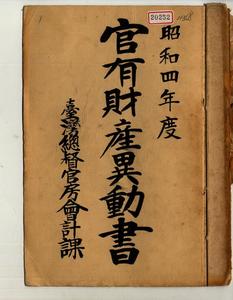 20252
1168
昭和四年度
官有財産異動書
臺灣總督官房會計課